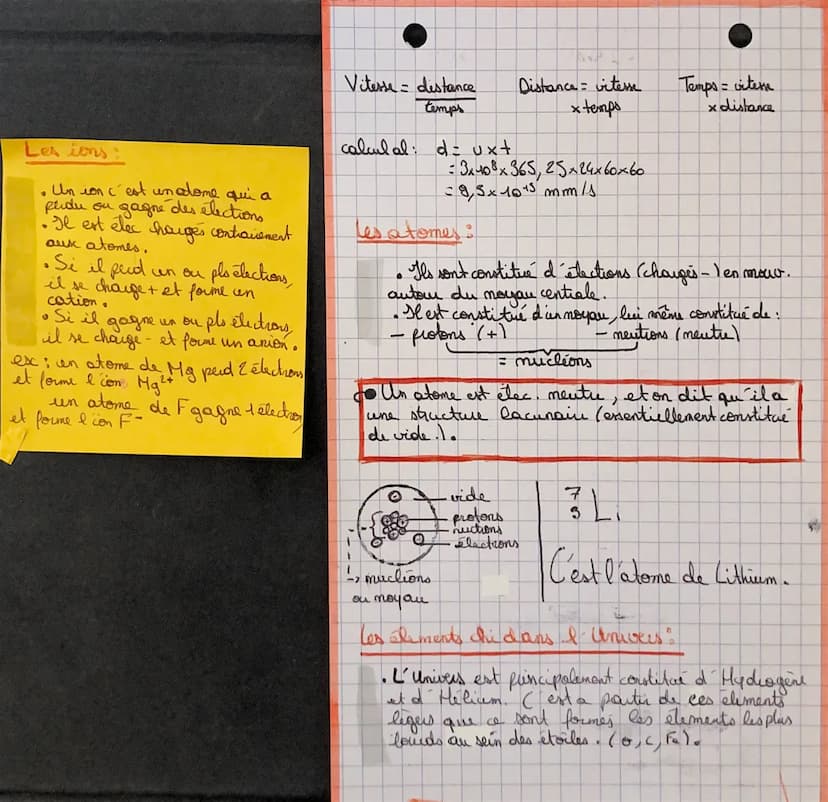 Les ions :
• Un ion c'est un atome qui a
perdu ou gagné des électrons
• Il est élec chargés contrairement
aux atomes.
• Si il perd un ou pls électrons,
il se charge + et forme un
cation.
• Si il gagne un ou pls électrons,
il se charge - et forme un anion.
ex : un atome de Mg perd 2 électrons
et forme l'ion Mg²⁺
un atome de F gagne 1 électron,
et forme l'ion F⁻
Vitesse = distance / temps
Distance = vitesse x temps
Temps = vitesse x distance
calcul al : d = v x t
= 3x10⁸ x 365,25 x 24 x 60 x 60
= 9,5 x 10¹⁵ mm/s
Les atomes :
• Ils sont constitué d'électrons (chargés -) en mouv.
autour du noyau centrale.
• Il est constitué d'un noyau, lui même constitué de :
- protons (+) - neutrons (neutre)
= nucléons
Un atome est élec. neutre, et on dit qu'il a
une structure lacunaire (essentiellement constitué
de vide.).
vide
protons
neutrons
électrons
-> nucléons
ou noyau
7
3 Li
C'est l'atome de Lithium.
Les éléments chi dans l'Univers :
• L'Univers est principalement constitué d'Hydrogène
et d'Hélium. C'est a partir de ces élements
légers que ce sont formés les élements les plus
lourds au sein des étoiles. (O, C, Fe).